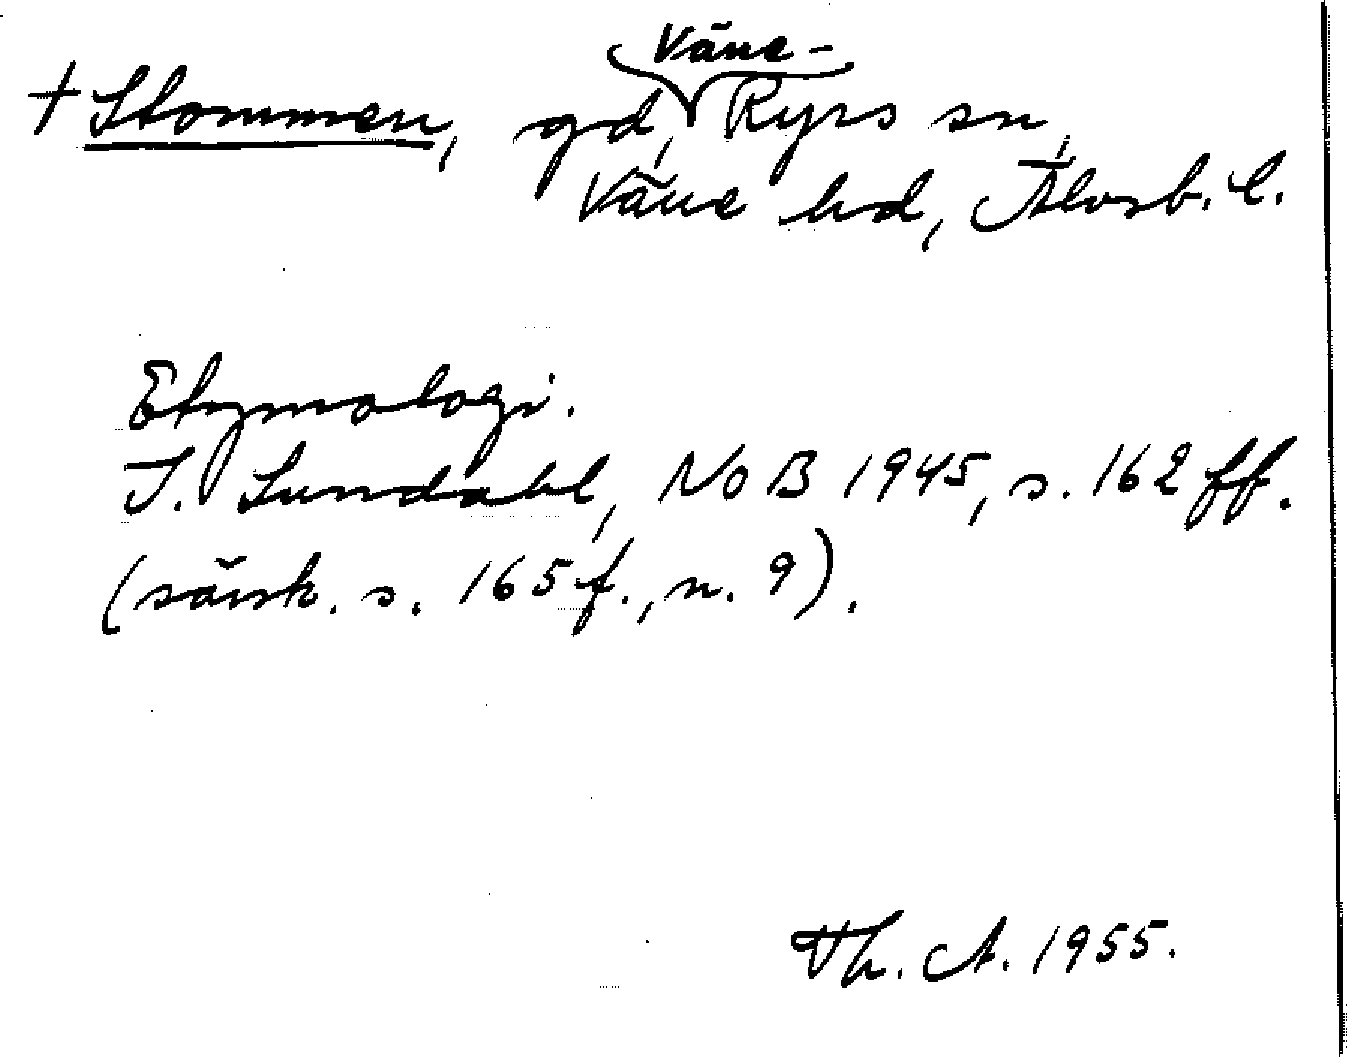 Väne-
† Stommen, gd, Ryrs sn,
Väne hd, Älvsb. l.
Etymologi.
I. Lundahl, NoB 1945, s. 162 ff.
(särsk. s. 165 f., n. 9).
Th. A. 1955.